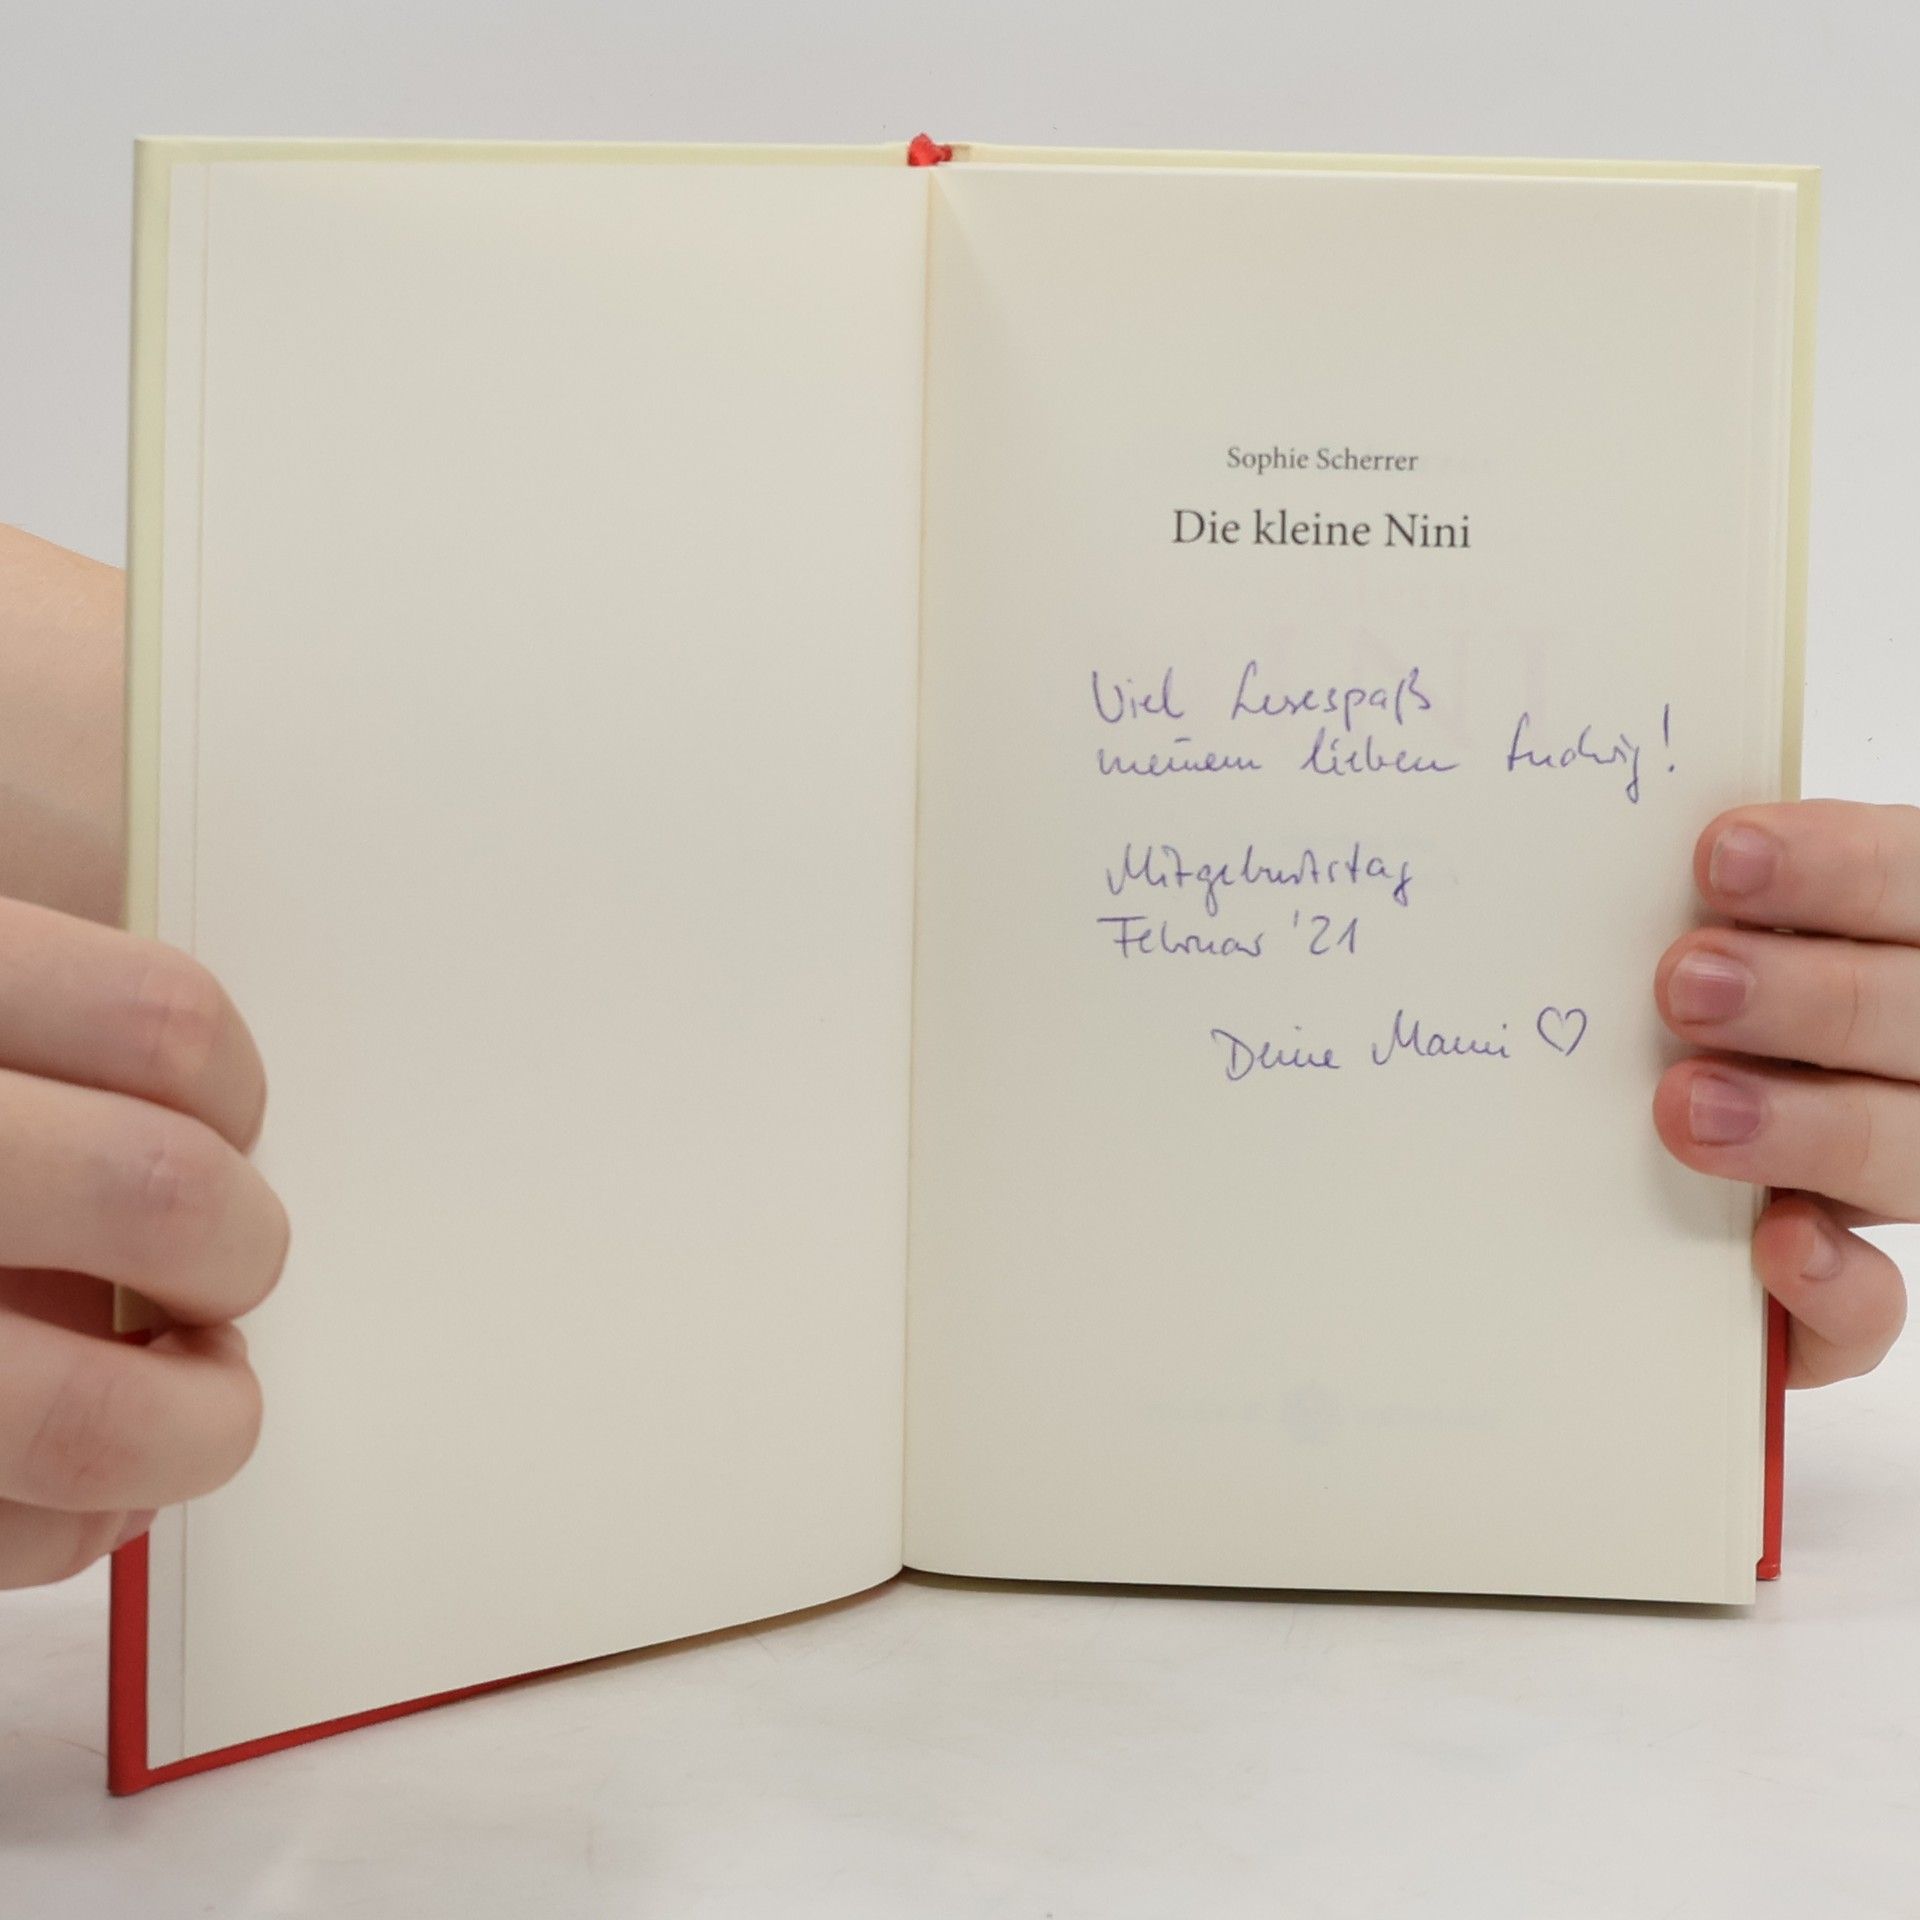 Sophie Scherrer
Die kleine Nini
Viel Lesespaß
meinem lieben Ludwig!
Mitgeburtstag
Februar '21
Deine Mami ♡